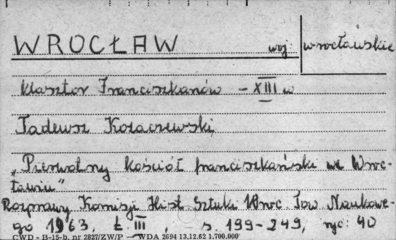 WROCŁAW woj. wrocławskie
klasztor Franciszkanów – XIII w
Tadeusz Kozaczewski
„Pierwotny kościół franciszkański we Wroc-
ławiu"
Rozprawy Komisji Hist. Sztuki Wroc. Tow. Naukowe-
go 1963, t. III, s 199-249, ryc. 40
CWD - B-15-b. nr 2827/ZW/P — WDA 2694 13.12.62 1.700.000